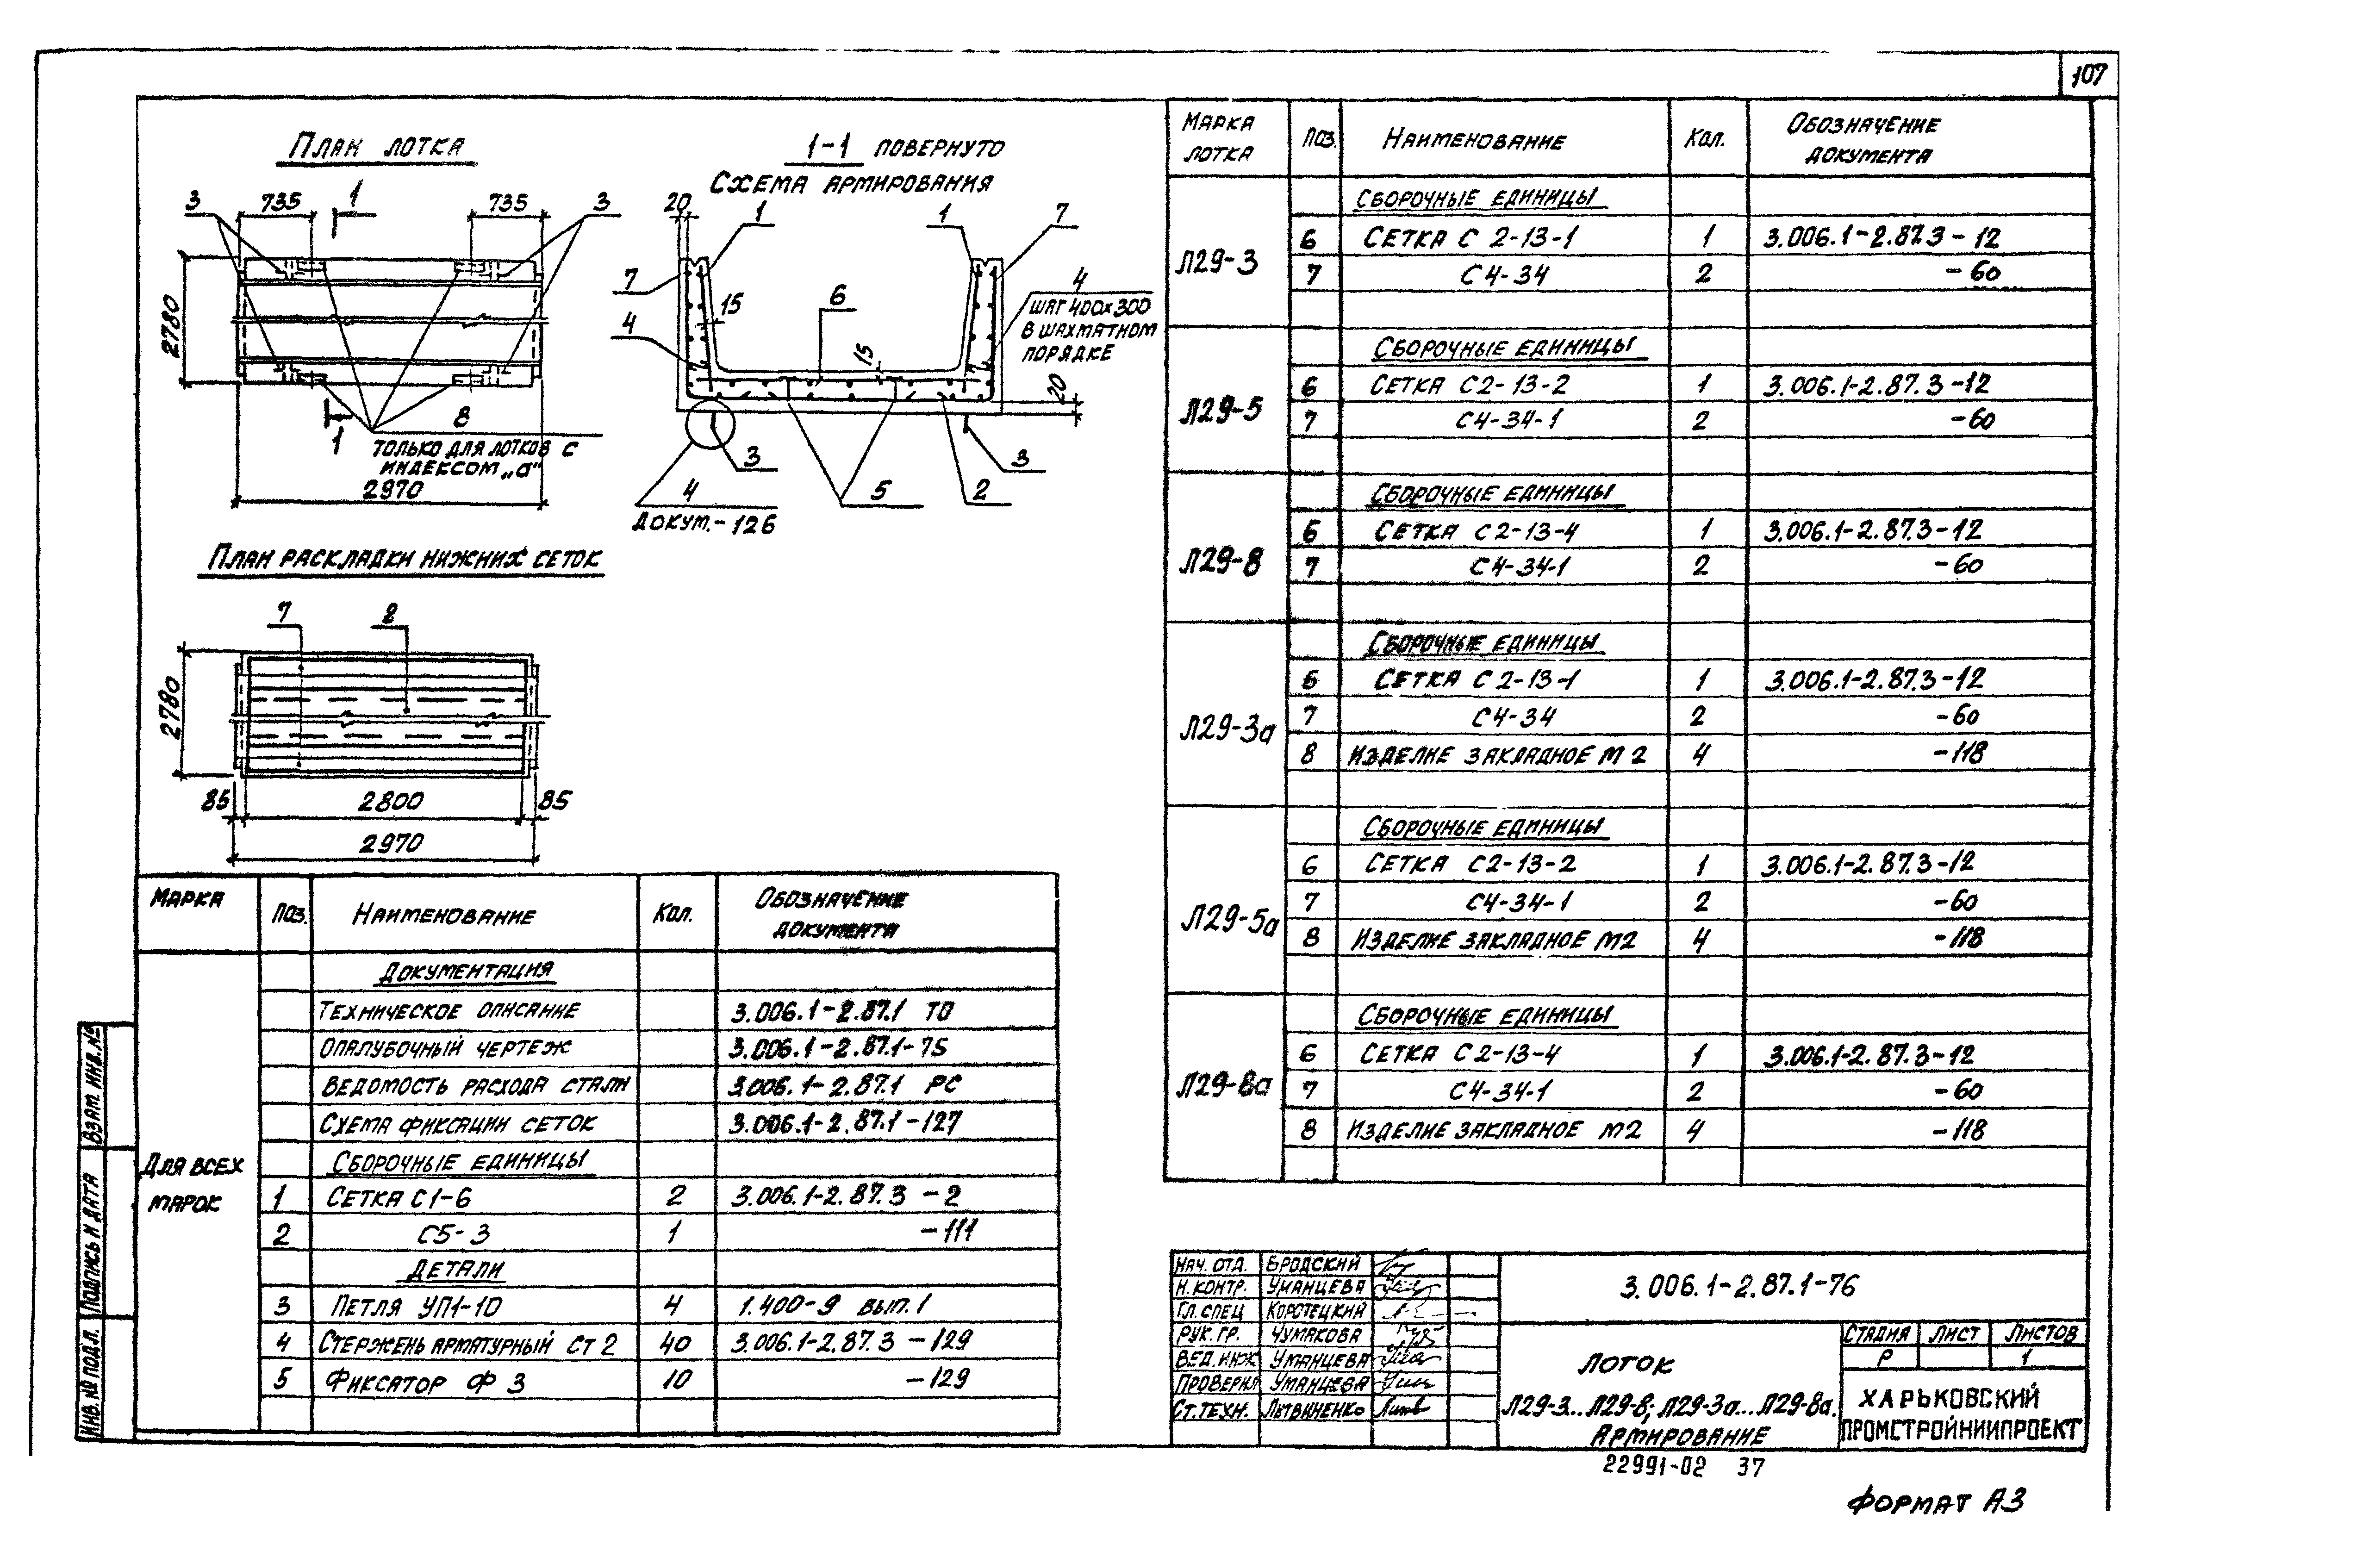 107
План лотка
3
735
1
735
3
2780
1
8
только для лотков с
индексом „а"
2970
1-1 повернуто
Схема армирования
20
1
1
7
7
4
15
6
15
4
шаг 400х300
в шахматном
порядке
20
3
3
4
докум.-126
5
2
План раскладки нижних сеток
7
2
2780
85
2800
85
2970
Марка Поз. Наименование Кол. Обозначение документа
Для всех марок
Документация
Техническое описание 3.006.1-2.87.1 ТО
Опалубочный чертеж 3.006.1-2.87.1-75
Ведомость расхода стали 3.006.1-2.87.1 РС
Схема фиксации сеток 3.006.1-2.87.1-127
Сборочные единицы
1 Сетка С1-6 2 3.006.1-2.87.3 -2
2 С5-3 1 -111
Детали
3 Петля УП1-10 4 1.400-9 вып.1
4 Стержень арматурный Ст 2 40 3.006.1-2.87.3 -129
5 Фиксатор Ф 3 10 -129
Марка лотка Поз. Наименование Кол. Обозначение документа
Л29-3
Сборочные единицы
6 Сетка С 2-13-1 1 3.006.1-2.87.3-12
7 С4-34 2 -60
Л29-5
Сборочные единицы
6 Сетка С2-13-2 1 3.006.1-2.87.3-12
7 С4-34-1 2 -60
Л29-8
Сборочные единицы
6 Сетка С2-13-4 1 3.006.1-2.87.3-12
7 С4-34-1 2 -60
Л29-3а
Сборочные единицы
6 Сетка С 2-13-1 1 3.006.1-2.87.3-12
7 С4-34 2 -60
8 Изделие закладное М 2 4 -118
Л29-5а
Сборочные единицы
6 Сетка С2-13-2 1 3.006.1-2.87.3-12
7 С4-34-1 2 -60
8 Изделие закладное М2 4 -118
Л29-8а
Сборочные единицы
6 Сетка С2-13-4 1 3.006.1-2.87.3-12
7 С4-34-1 2 -60
8 Изделие закладное М2 4 -118
Инв. № подл. Подпись и дата Взам. инв. №
Нач. отд. Бродский
Н. контр. Уманцева
Гл. спец Коротецкий
Рук. гр. Чумакова
Вед. инж Уманцева
Проверил Уманцева
Ст. техн. Литвиненко
3.006.1-2.87.1-76
Лоток
Л29-3...Л29-8; Л29-3а...Л29-8а.
Армирование
Стадия Лист Листов
Р 1
Харьковский
Промстройниипроект
22991-02 37
Формат А3